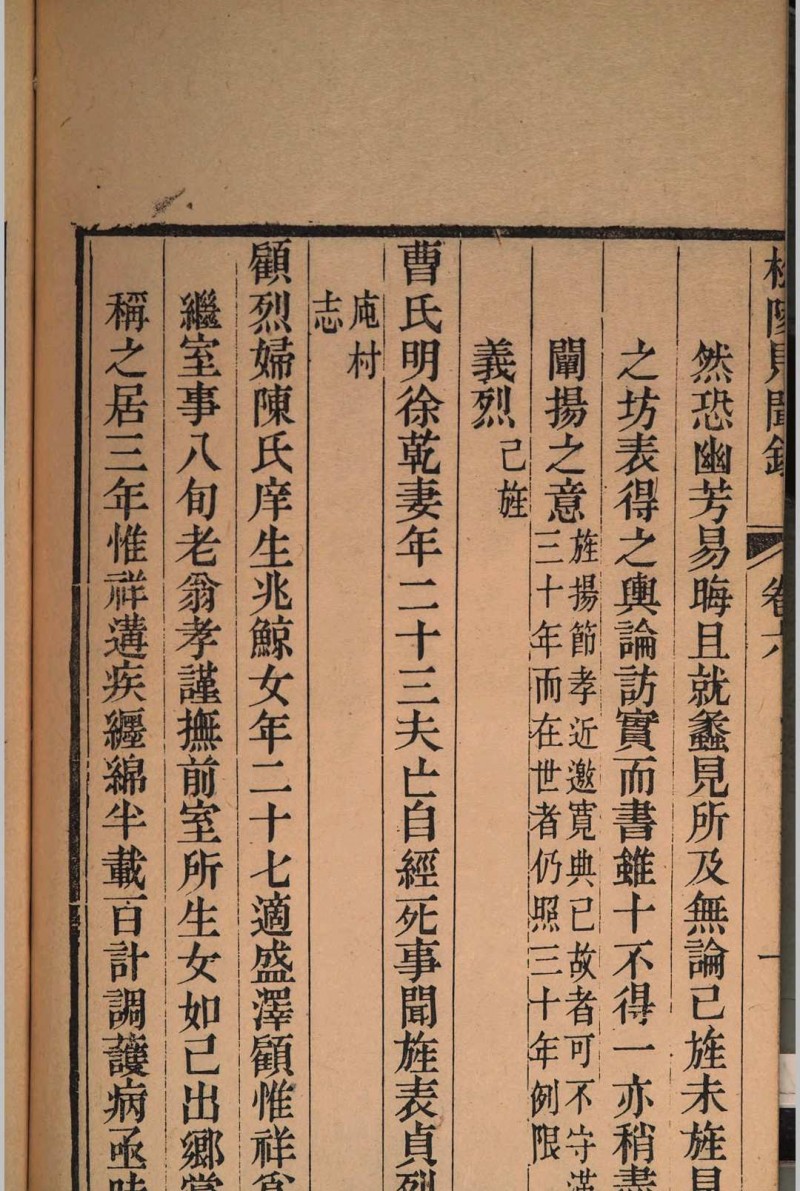 聞錄
卷六
一
然恐幽芳易晦且就蠡見所及無論已旌未旌
之坊表得之輿論訪實而書雖十不得一亦稍盡
闡揚之意旌揚節孝近邀寬典已故者可不守滿
三十年而在世者仍照三十年例限
義烈已旌
曹氏明徐乾妻年二十三夫亡自經死事聞旌表貞烈
庉村
志
顧烈婦陳氏庠生兆鯨女年二十七適盛澤顧惟祥爲
繼室事八旬老翁孝謹撫前室所生女如己出鄉黨
稱之居三年惟祥遘疾纏綿半載百計調護病亟